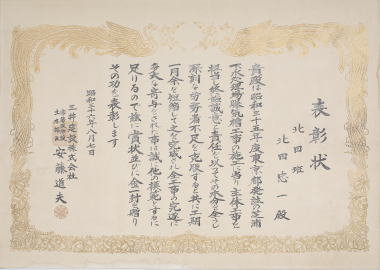 表彰状
北田班
北田忠一殿
貴殿は昭和三十五年度東京都発注の芝浦
下水処理場曝気槽工事の施工に当り主体工事を
担当し終始誠意と責任を以てその本分を全うし
深刻な労務者不足を克服すると共に工期
一月余を短縮して之を完成され全工事の完遂に
多大な寄与をされた事は誠に他の模範とするに
足りるので茲に賞状並びに金一封を贈り
その功を表彰します
昭和三十六年八月七日
三井建設株式会社
安藤道夫